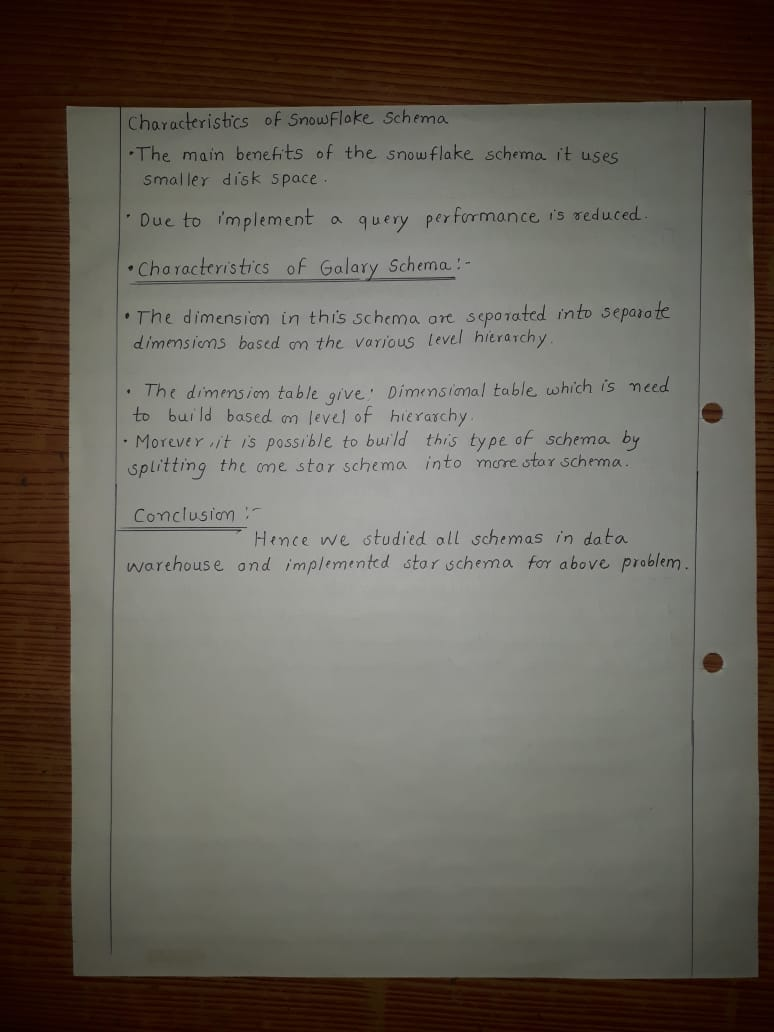 Characteristics of Snowflake Schema
• The main benefits of the snowflake schema it uses
smaller disk space.
• Due to implement a query performance is reduced.
• Characteristics of Galary Schema :-
• The dimension in this schema are separated into separate
dimensions based on the various level hierarchy.
• The dimension table give: Dimensional table which is need
to build based on level of hierarchy.
• Morever, it is possible to build this type of schema by
splitting the one star schema into more star schema.
Conclusion :-
Hence we studied all schemas in data
warehouse and implemented star schema for above problem.